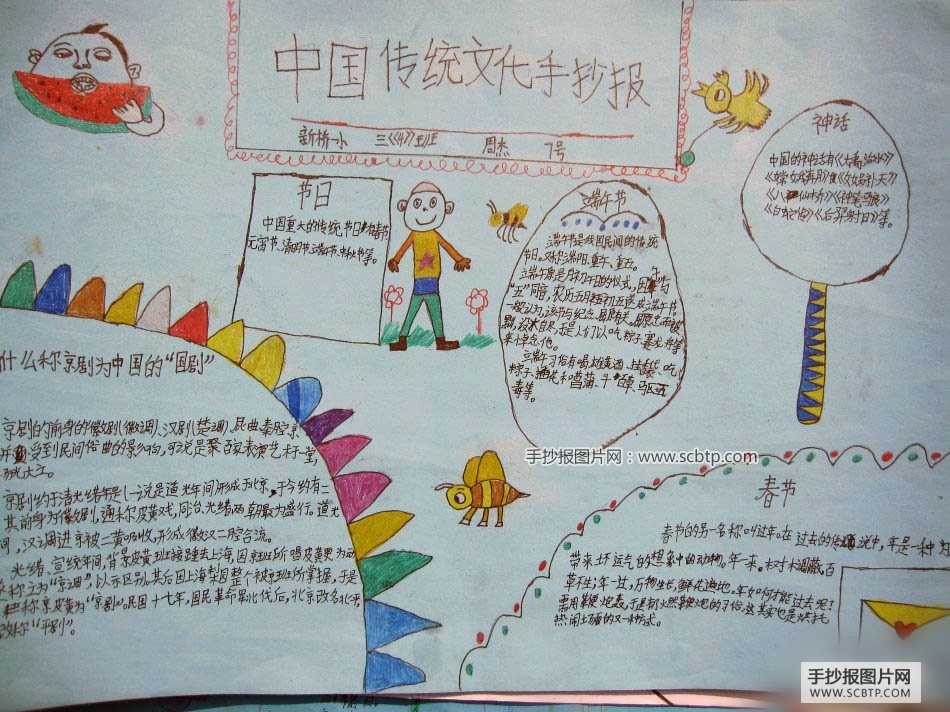 中国传统文化手抄报
新桥一小 三《4》班 周杰 7号
节日
中国重大的传统节日有春节
元宵节、清明节、端午节、中秋节等。
端午节
端午节是我国民间的传统
节日。又称端阳、重午、重五。
端午原是月初午日的仪式,因"五"与
"五"同音,农历五月初五遂成端午节。
一般认为,该节与纪念屈原有关。屈原
来悼念他。
端午习俗有喝雄黄酒、挂香袋、吃
粽子、插花和菖蒲、斗百草、驱五
毒等。
神话
中国的神话有《大禹治水》
《嫦娥奔月》《女娲补天》
《八仙过桥》《神笔马良》
《白蛇传》《后羿射日》等。
什么称京剧为中国的"国剧"
京剧的前身的徽剧(徽调)、汉剧(楚调)、昆曲秦腔京
并受到民间俗曲的影响,可说是聚百家表演艺术于一堂,
京剧约于清光绪年是(一说是道光年间)形成于北京,于今约有二
其前身为徽剧,通称皮黄戏,同治光绪两朝最为盛行。道光
间,汉调进京被二黄吸收,形成徽汉二腔合流。
光绪、宣统年间,背景皮黄班接踵去上海,因京班所唱皮黄更为动
称之为"京调",以示区别。其后因上海梨园整个被京班所掌握,于是
称京皮黄为"京剧"。民国十七年,国民革命军北伐后,北京改名北平,
改称"平剧"。
手抄报图片网:www.scbtp.com
春节
春节的另一名称叫过年。在过去的传说中,年是一种
带来坏运气的想象中的动物。年一来。树木凋蔽,百
草不生;年一过,万物生长,鲜花遍地。年如何才能过去呢?
需用鞭炮轰,于是有了燃鞭炮的习俗,这其实也是烘托
热闹场面的又一种方式。
手抄报图片网
WWW.SCBTP.COM